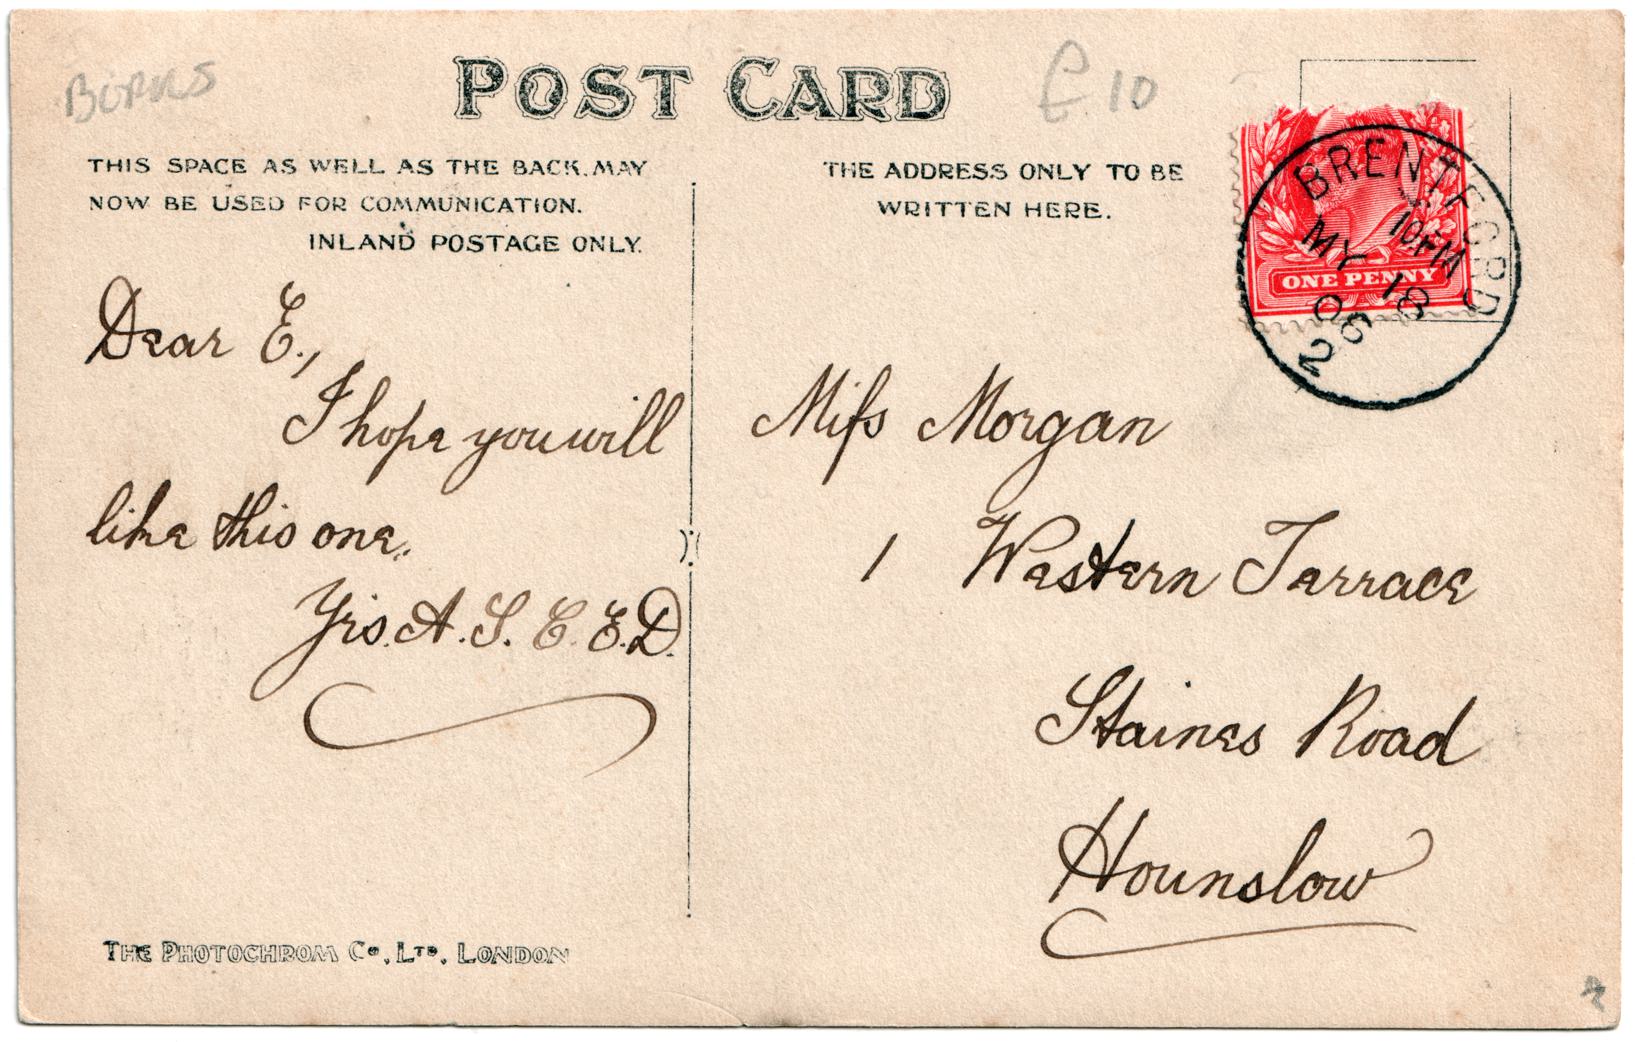 POST CARD
£10
THIS SPACE AS WELL AS THE BACK, MAY
NOW BE USED FOR COMMUNICATION.
INLAND POSTAGE ONLY.
THE ADDRESS ONLY TO BE
WRITTEN HERE.
BRENTFORD
10 PM
MY 18
06
2
ONE PENNY
Dear E.,
I hope you will
like this one.
Yrs. A. S. C. E. D.
Miſs Morgan
1 Western Terrace
Staines Road
Hounslow
THE PHOTOCHROM Co, LTD, LONDON